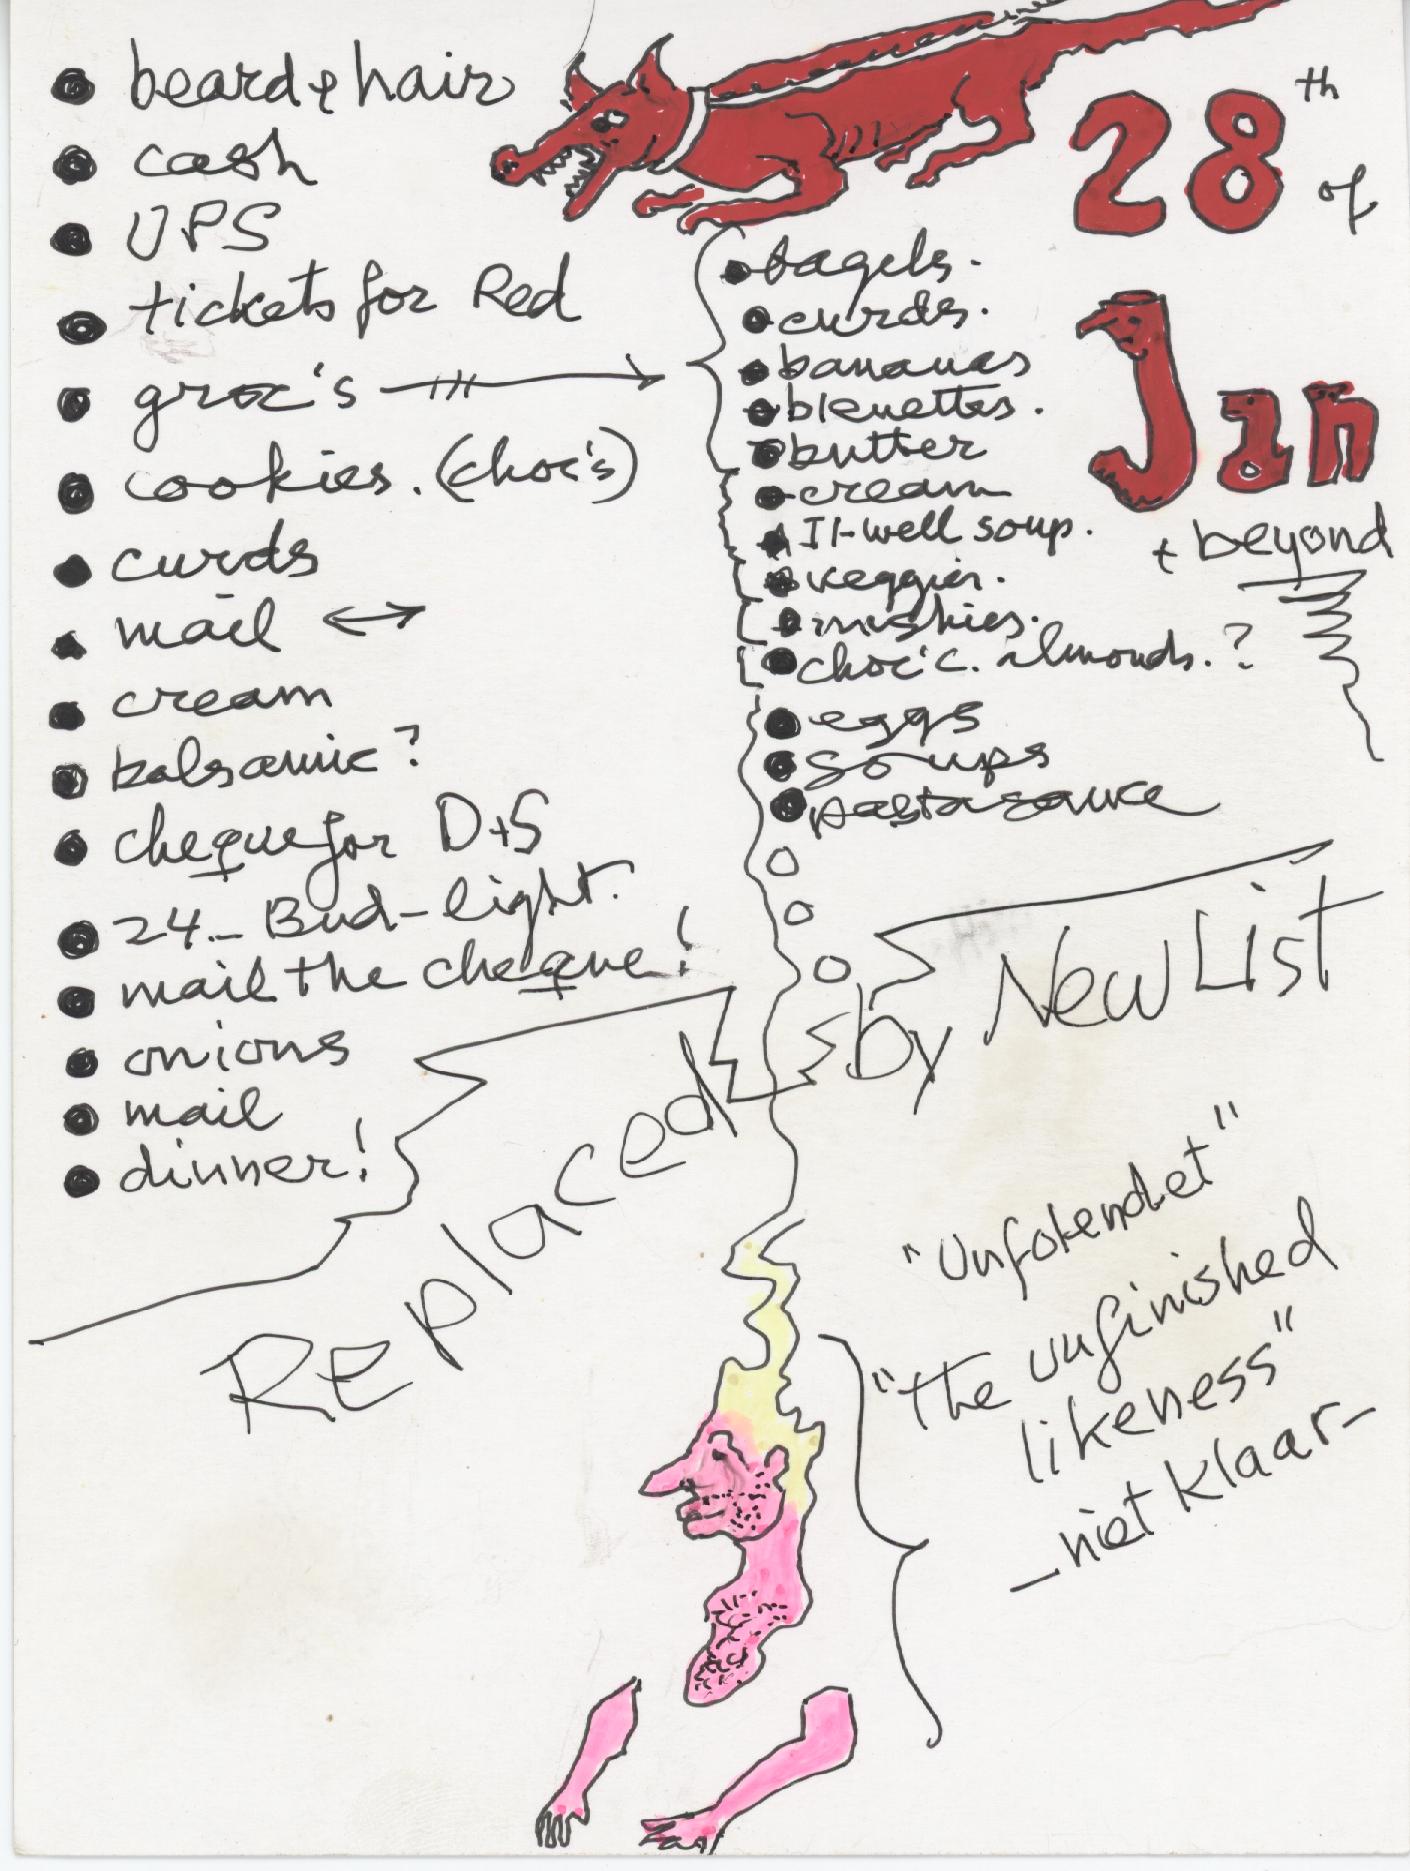 beard & hair
cash
UPS
tickets for Red
groc's
cookies. (choc's)
curds
mail ↔
cream
balsamic?
cheque for D+S
24 - Bud-light.
mail the cheque!
onions
mail
dinner!
28th of
Jan
+ beyond
bagels.
curds.
bananas
bleuettes.
butter
cream
It-well soup.
veggies.
mushies.
choc'c. almonds.?
eggs
soups
pasta sauce
Replaced by New List
"Unfokendet"
"the unfinished
likeness"
- niet klaar -